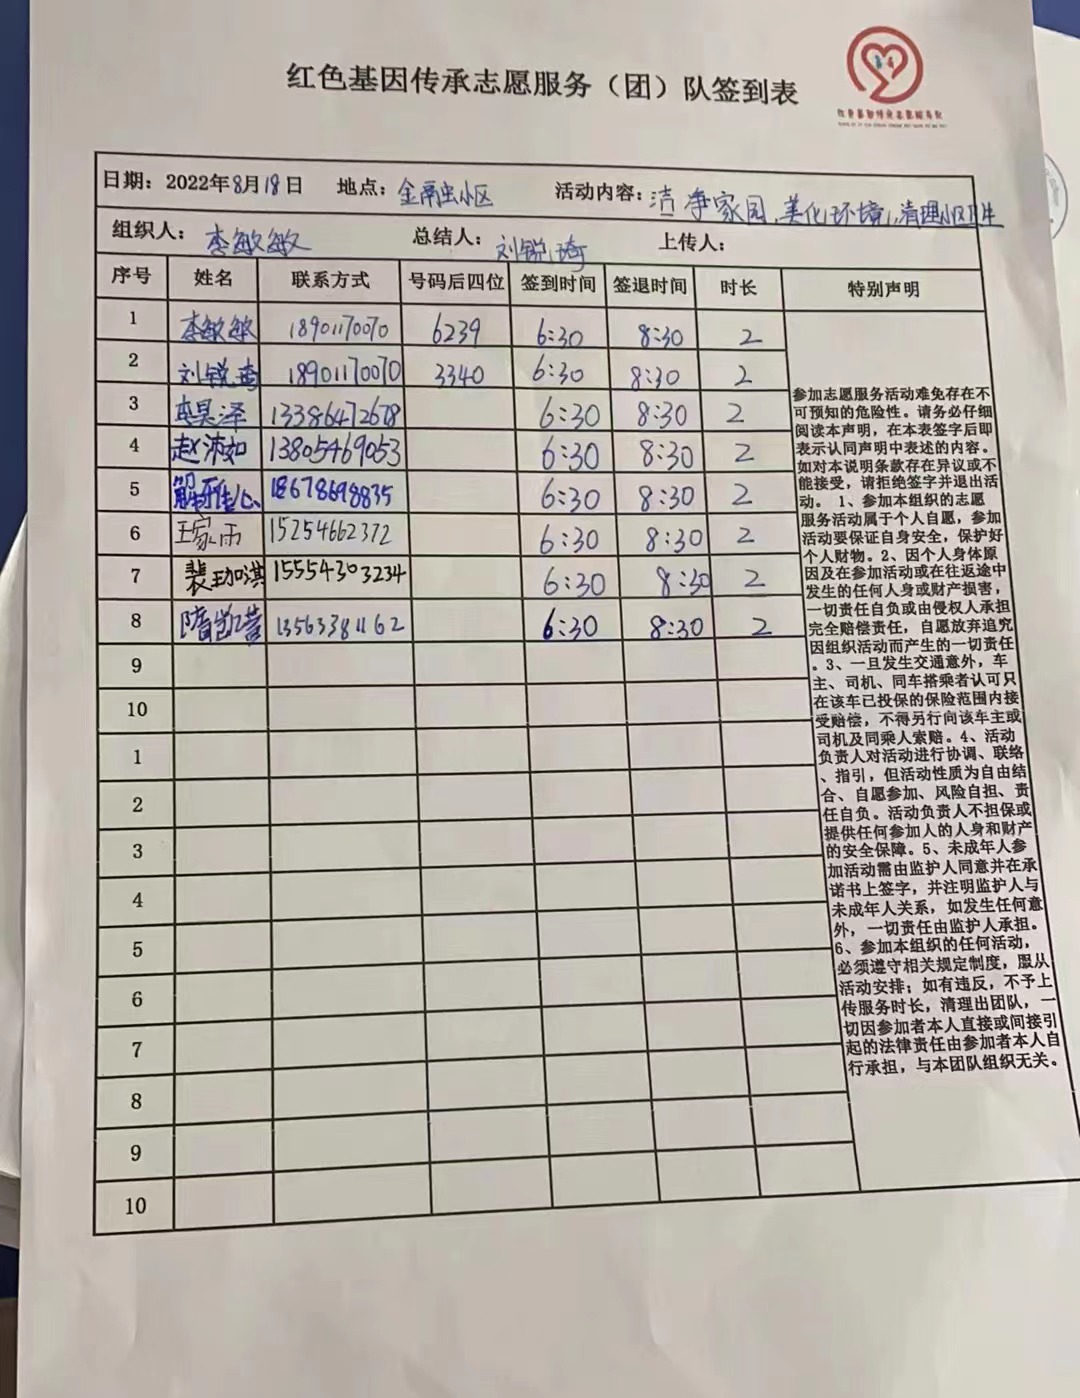 红色基因传承志愿服务（团）队签到表
日期：2022年8月18日 地点：金融小区 活动内容：洁净家园，美化环境，清理小区卫生
组织人：李敏敏 总结人：刘锐琦 上传人：
序号 姓名 联系方式 号码后四位 签到时间 签退时间 时长 特别声明
1 李敏敏 18901170070 6239 6:30 8:30 2
2 刘锐琦 18901170070 3340 6:30 8:30 2
3 昊泽 13386472678 6:30 8:30 2
4 赵沛如 13805469053 6:30 8:30 2
5 解雅心 18678698835 6:30 8:30 2
6 王家雨 15254662372 6:30 8:30 2
7 裴珈淇 15554303234 6:30 8:30 2
8 隋凯营 13563381162 6:30 8:30 2
9
10
1
2
3
4
5
6
7
8
9
10
参加志愿服务活动难免存在不
可预知的危险性。请务必仔细
阅读本声明，在本表签字后即
表示认同声明中表述的内容。
如对本说明条款存在异议或不
能接受，请拒绝签字并退出活
动。1、参加本组织的志愿
服务活动属于个人自愿，参加
活动要保证自身安全，保护好
个人财物。2、因个人身体原
因及在参加活动或在往返途中
发生的任何人身或财产损害，
一切责任自负或由侵权人承担
完全赔偿责任，自愿放弃追究
因组织活动而产生的一切责任
。3、一旦发生交通意外，车
主、司机、同车搭乘者认可只
在该车已投保的保险范围内接
受赔偿，不得另行向该车主或
司机及同乘人索赔。4、活动
负责人对活动进行协调、联络
、指引，但活动性质为自由结
合、自愿参加、风险自担、责
任自负。活动负责人不担保或
提供任何参加人的人身和财产
的安全保障。5、未成年人参
加活动需由监护人同意并在承
诺书上签字，并注明监护人与
未成年人关系，如发生任何意
外，一切责任由监护人承担。
6、参加本组织的任何活动，
必须遵守相关规定制度，服从
活动安排；如有违反，不予上
传服务时长，清理出团队，一
切因参加者本人直接或间接引
起的法律责任由参加者本人自
行承担，与本团队组织无关。